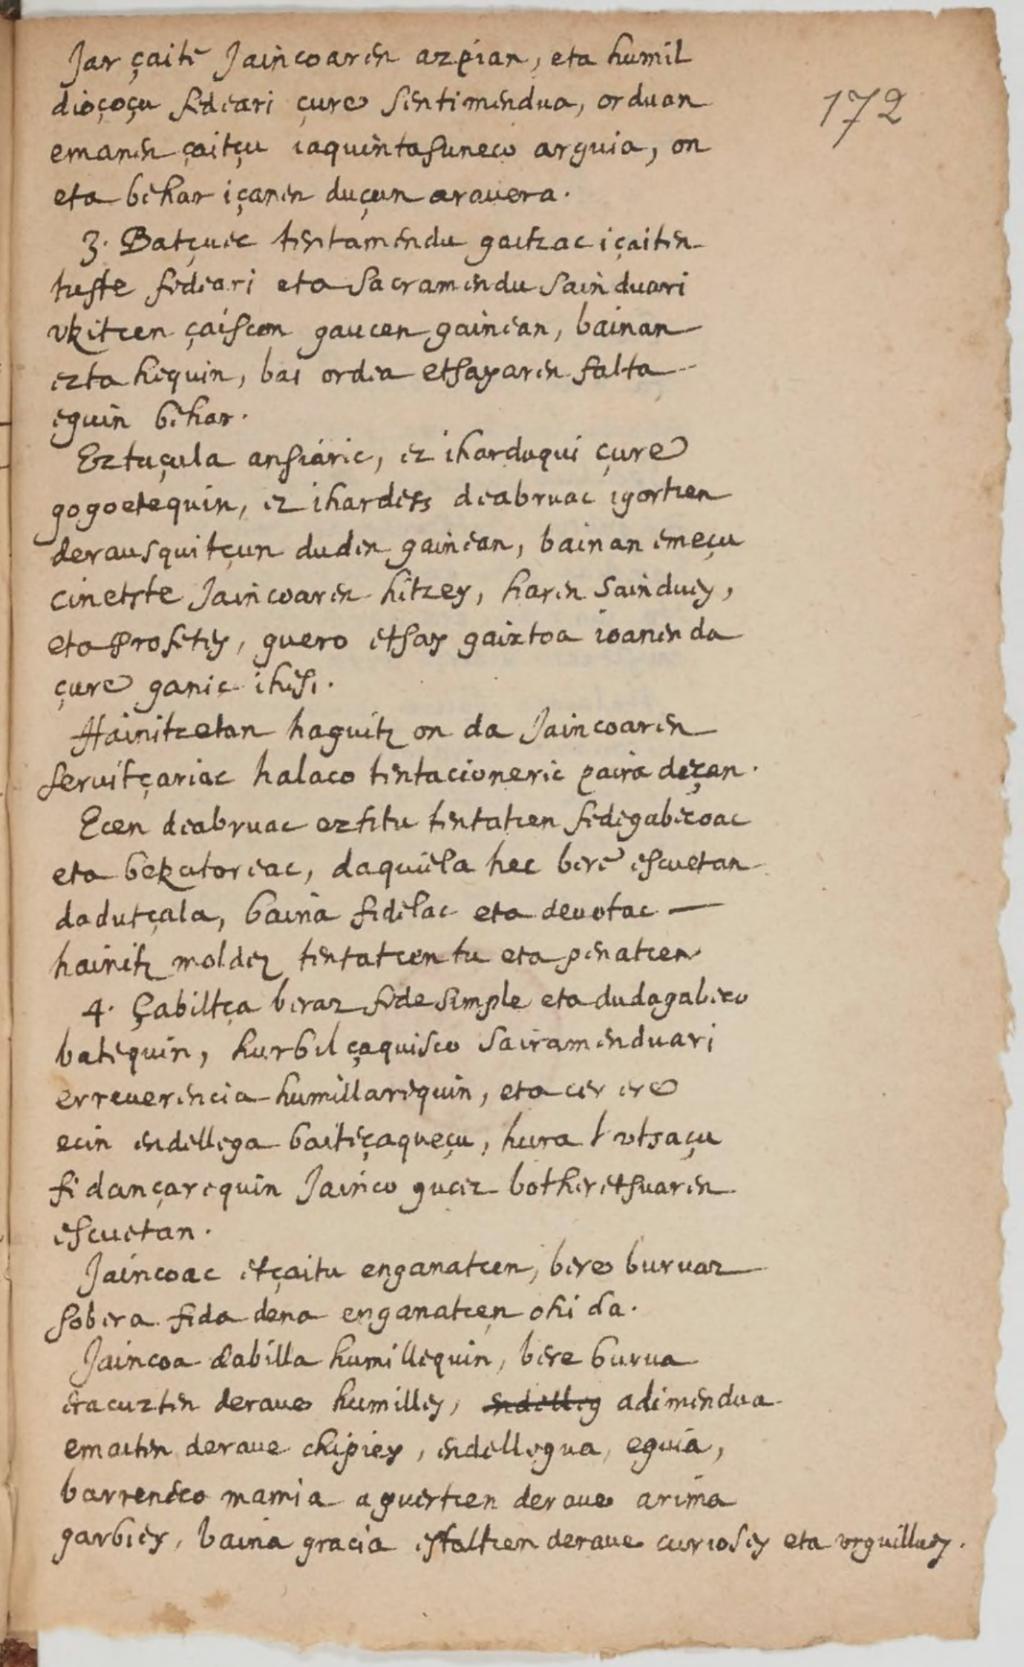 Jar çaite Jaincoaren azpian, eta humil
dioçoçu fedeari çure sentimendua, orduan
172
emanen çaitçu iaquintasuneco arguia, on
eta behar içanen duçun arauera.
3. Batçuec tentamendu gaitzac içaiten
tuste fedeari eta Sacramendu Sainduari
vkitcen çaiscon gaucen gainean, bainan
ezta hequin, bai ordea etsayaren falta
eguin behar.
Eztuçula ansiaric, ez iharduqui çure
gogoetequin, ez ihardets deabruac igortcen
derausquitçun duden gainean, bainan emeçu
cinetste Jaincoaren hitzey, haren Sainduey,
eta Profetey, guero etsay gaixtoa ioanen da
çure ganic ihesi.
Hainitzetan haguitz on da Jaincoaren
servitçariac halaco tentacioneric paira deçan.
Ecen deabruac eztitu tentatcen fedegabecoac
eta bekatoreac, daquiela hec bere escuetan
dadutçala, baina fidelac eta devotac —
hainitz moldez tentatcen tu eta penatcen
4. Çabiltça beraz fede simple eta dudagabeco
batequin, hurbil çaquisco sacramenduari
erreverencia humillarequin, eta cer ere
ecin endellega baiteçaqueçu, hura vtsaçu
fidançarequin Jainco guciz botheretsuaren
escuetan.
Jaincoac etçaitu enganatcen, bere buruaz
sobera fida dena enganatcen ohi da.
Jaincoa dabilla humillequin, bere burua
eracuzten deraue humilley, endelleg adimendua
emaiten deraue chipiey, endellegua, eguia,
barreneco mamia aguertcen deraue arima
garbiey, baina gracia estaltcen deraue curiosey eta vrguilluey.